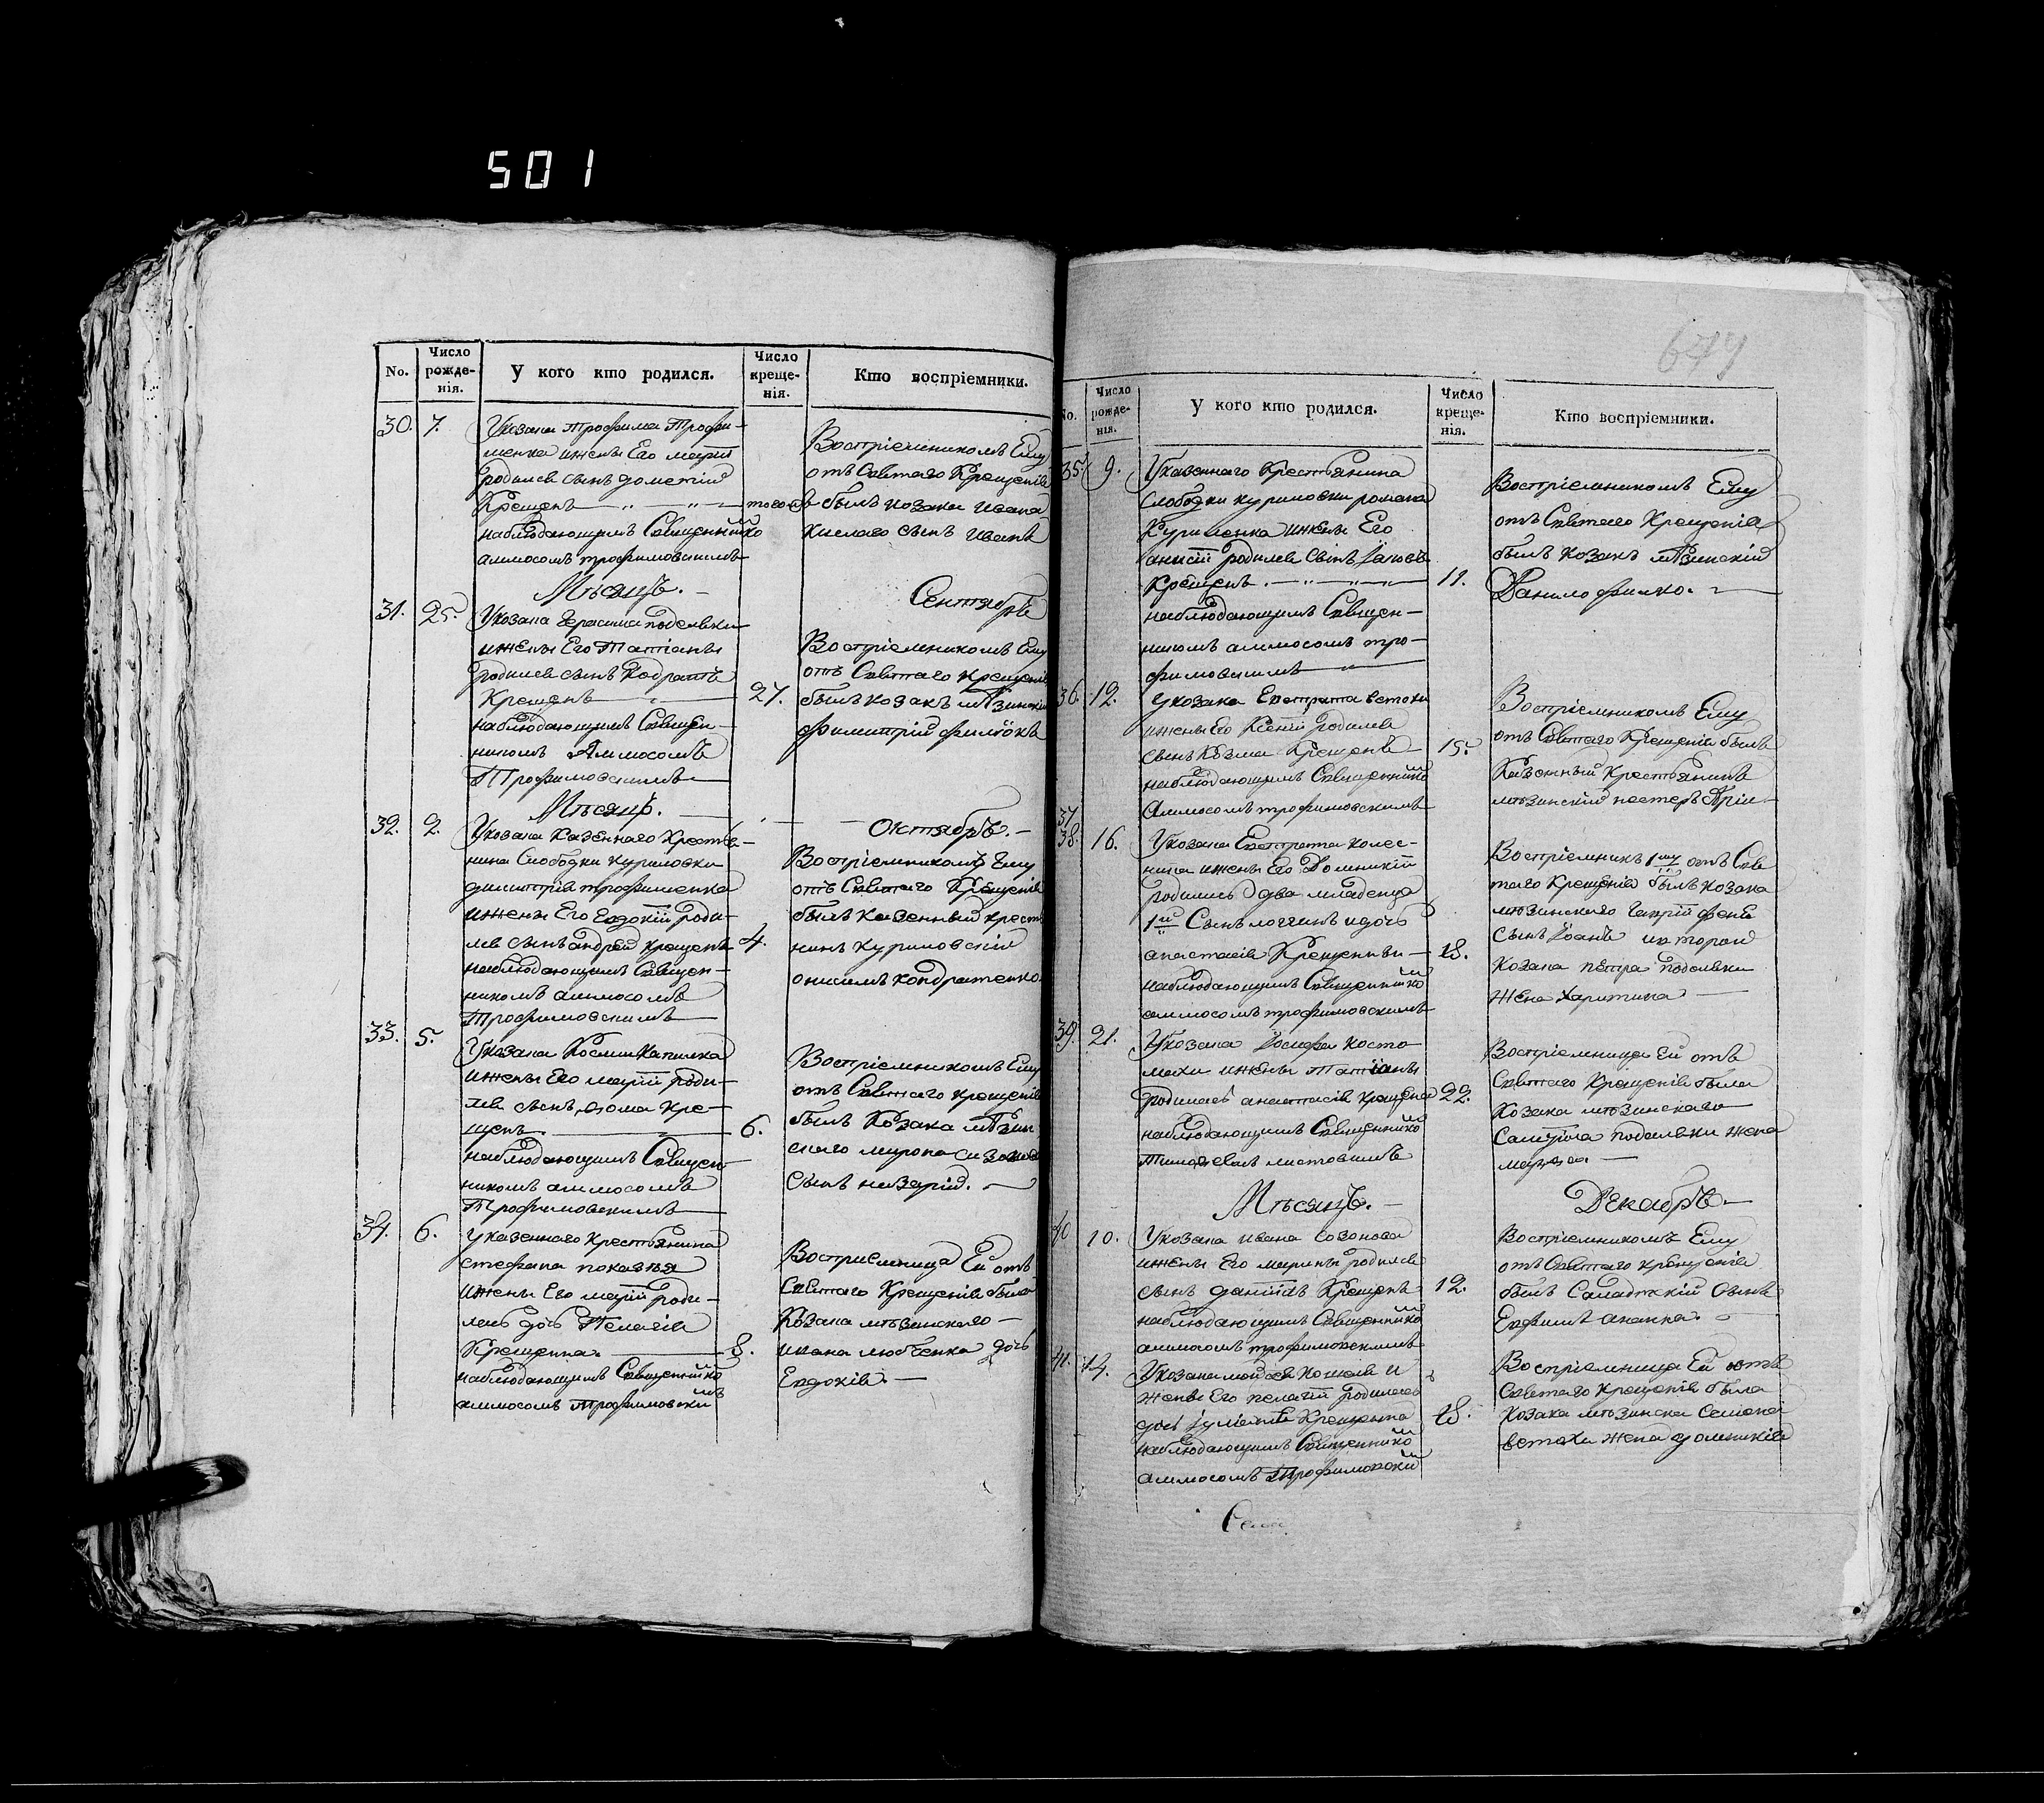 501
No.
Число рожденія.
У кого кто родился.
Число крещенія.
Кто воспріемники.
30. 7.
Укозака трофима Трофи-
менка ижены Его маріи
родился сынъ дометій
Крещенъ — того ж
наблюдающимъ Священнико
аммосомъ трофимовскимъ
Воспріемникомъ Ему
отъ Святаго Крещенія
былъ козака ивана
кислаго сынъ иванъ
Мѣсяцъ. Сентябрь
31. 25.
Укозака Герасима поделвки
ижены Его Татіаны
родился сынъ Кодратъ
Крещенъ — 27.
наблюдающимъ Священ-
никомъ Аммосомъ
Трофимовскимъ
Воспріемникомъ Ему
отъ Святаго крещенія
былъ козакъ
Мѣсяцъ. — Октябрь. —
32. 2.
Укозака казеннаго Крестья-
нина Слободки Куриловки
димитрія трофименка
ижены Его Евдокіи роди-
лся сынъ андрей крещенъ 4.
наблюдающимъ Священ-
никомъ аммосомъ
Трофимовскимъ
Воспріемникомъ Ему
отъ Святаго Крещенія
былъ казенный крестья
нинъ куриловскій
онисимъ кондратенко.
33. 5.
Укозака Космы Капилка
ижены Его маріи роди-
лся сынъ фома кре-
щенъ — 6.
наблюдающимъ Священ-
никомъ аммосомъ
Трофимовскимъ
Воспріемникомъ Ему
отъ Святаго крещенія
былъ Козака мѣзин
скаго мирона
сынъ назарій. —
34. 6.
Указеннаго крестьянина
стефана
ижены Его маріи роди-
лась дочь Пелагія
Крещенна — 8.
наблюдающимъ Священнико
аммосомъ Трофимовски
Воспріемница Ей отъ
Святаго Крещенія была
Козака мѣзинскаго —
ивана любченка дочь
Евдокія. —
No.
Число рожденія.
У кого кто родился.
Число крещенія.
Кто воспріемники.
35. 9.
Указеннаго Крестьянина
Слободки куриловки романа
Куриленка ижены Его
анисіи родился Сынъ Іаковъ
Крещенъ. — 11.
наблюдающимъ Священ-
никомъ аммосомъ тро-
фимовскимъ —
Воспріемникомъ Ему
отъ Святаго Крещенія
былъ козакъ мѣзинскій
Данило филко. —
36. 12.
Укозака Евстрата
ижены Его Ксеніи родился
сынъ Козма Крещенъ — 15.
наблюдающимъ Священнико
Аммосомъ трофимовскимъ
Воспріемникомъ Ему
отъ Святаго Крещенія былъ
Казенный Крестьянинъ
мѣзинскій нестеръ
37
38. 16.
Укозака Евстрата колес-
ника ижены Его Домникіи
родились два младенца
1й Сынъ логгинъ идочь
анастасія Крещенны — 18.
наблюдающимъ Священнико
аммосомъ трофимовскимъ
Воспріемникъ 1му отъ Свя
таго Крещенія былъ козака
мѣзинскаго
сынъ Іоанъ ивторой
Козака петра поделвки
жена харитина —
39. 21.
Укозака Іосифа косто
махи ижены татіаны
родилась анастасія крещена 22.
наблюдающимъ Священнико
Воспріемница Ей отъ
Святаго Крещенія была
Козака мѣзинскаго
Самуила поделвки жена
Мѣсяцъ. — Декабрь —
40 10.
Укозака ивана созонова
ижены Его марины родился
сынъ даніилъ Крещенъ 12.
наблюдающимъ Священнико
аммосомъ трофимовскимъ
Воспріемникомъ Ему
отъ Святаго крещенія
былъ Салдатскій Сынъ
41. 14.
и
жены Его пелагіи родилась
дочь Крещенна 18.
наблюдающимъ Священнико
аммосомъ Трофимовски
Воспріемница Ей отъ
Святаго Крещенія была
козака мѣзинска
жена домникія